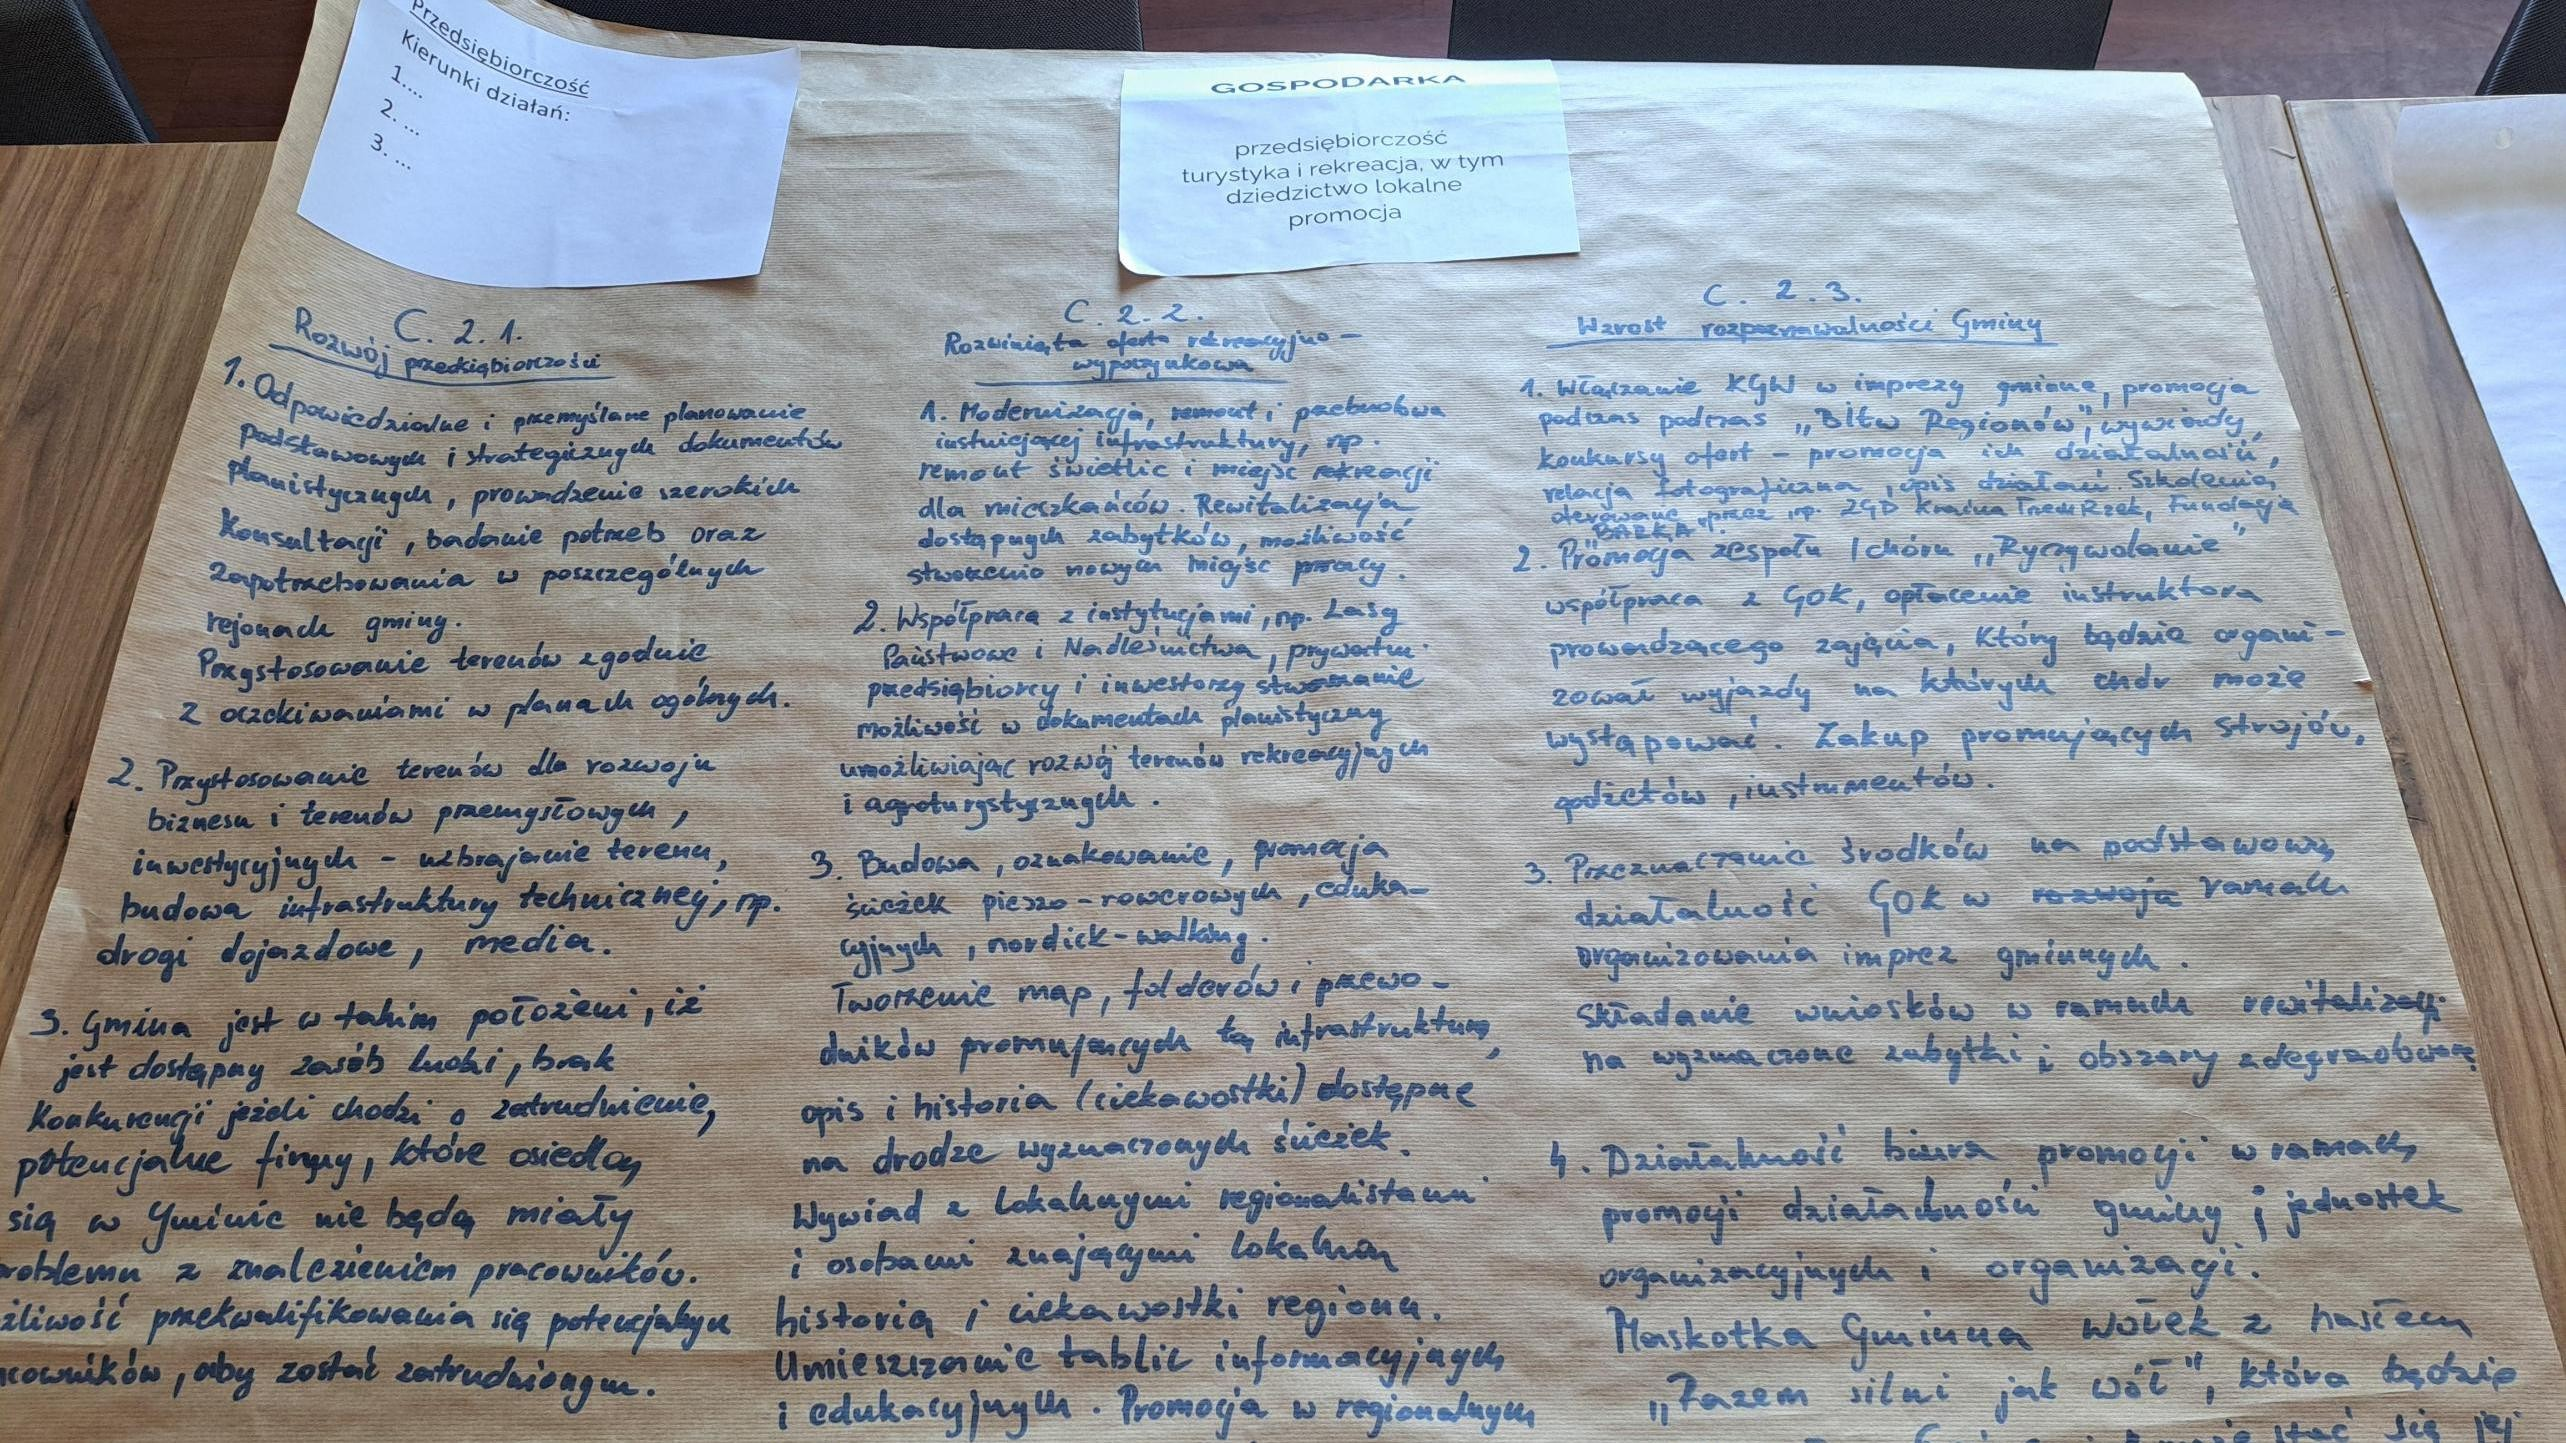 Przedsiębiorczość
Kierunki działań:
1....
2. ...
3. ...
GOSPODARKA
przedsiębiorczość
turystyka i rekreacja, w tym
dziedzictwo lokalne
promocja
C. 2.1.
Rozwój przedsiębiorczości
1. Odpowiedzialne i przemyślane planowanie
podstawowych i strategicznych dokumentów
planistycznych, prowadzenie szerokich
konsultacji, badanie potrzeb oraz
zapotrzebowania w poszczególnych
rejonach gminy.
Przystosowanie terenów zgodnie
z oczekiwaniami w planach ogólnych.
2. Przystosowanie terenów dla rozwoju
biznesu i terenów przemysłowych,
inwestycyjnych - uzbrajanie terenu,
budowa infrastruktury technicznej, np.
drogi dojazdowe, media.
3. Gmina jest w takim położeni, iż
jest dostępny zasób ludzi, brak
konkurencji jeżeli chodzi o zatrudnienie,
potencjalne firmy, które osiedlą
się w Gminie nie będą miały
roblemu z znalezieniem pracowników.
żliwość przekwalifikowania się potencjalnych
cowników, aby zostać zatrudnionym.
C. 2.2.
Rozwinięta oferta rekreacyjno -
wypoczynkowa
1. Modernizacja, remont i przebudowa
istniejącej infrastruktury, np.
remont świetlic i miejsc rekreacji
dla mieszkańców. Rewitalizacja
dostępnych zabytków, możliwość
stworzenia nowych miejsc pracy.
2. Współpraca z instytucjami, np. Lasy
Państwowe i Nadleśnictwa, prywatni
przedsiębiorcy i inwestorzy stwarzanie
możliwość w dokumentach planistyczny
umożliwiając rozwój terenów rekreacyjnych
i agroturystycznych.
3. Budowa, oznakowanie, promocja
ścieżek pieszo-rowerowych, eduka-
cyjnych, nordick-walking.
Tworzenie map, folderów i przewo-
dników promujących tą infrastrukturę,
opis i historia (ciekawostki) dostępne
na drodze wyznaczonych ścieżek.
Wywiad z lokalnymi regionalistami
i osobami znającymi lokalną
historią i ciekawostki regionu.
Umieszczanie tablic informacyjnych
i edukacyjnych. Promocja w regionalnym
C. 2.3.
Wzrost rozpoznawalności Gminy
1. Włączanie KGW w imprezy gminne, promocja
podczas podczas „Bitw Regionów", wywiady,
konkursy ofert - promocja ich działalność,
relacja fotograficzna, opis działań. Szkolenia
oferowane przez np. LGD Kraina Trzech Rzek, Fundacja
„BARKA".
2. Promocja zespołu / chóru „Ryczywolanie"
współpraca z GOK, opłacenie instruktora
prowadzącego zajęcia, który będzie organi-
zował wyjazdy na których chór może
występować. Zakup promujących strojów,
gadżetów, instrumentów.
3. Przeznaczenie środków na podstawową
działalność GOK w rozwoju ramach
organizowania imprez gminnych.
Składanie wniosków w ramach rewitalizacji
na wyznaczone zabytki i obszary zdegradowane
4. Działalność biura promocji w ramach
promocji działalności gminy i jednostek
organizacyjnych i organizacji.
Maskotka Gminna wołek z hasłem
„Razem silni jak wół", która będzie
stać się jej